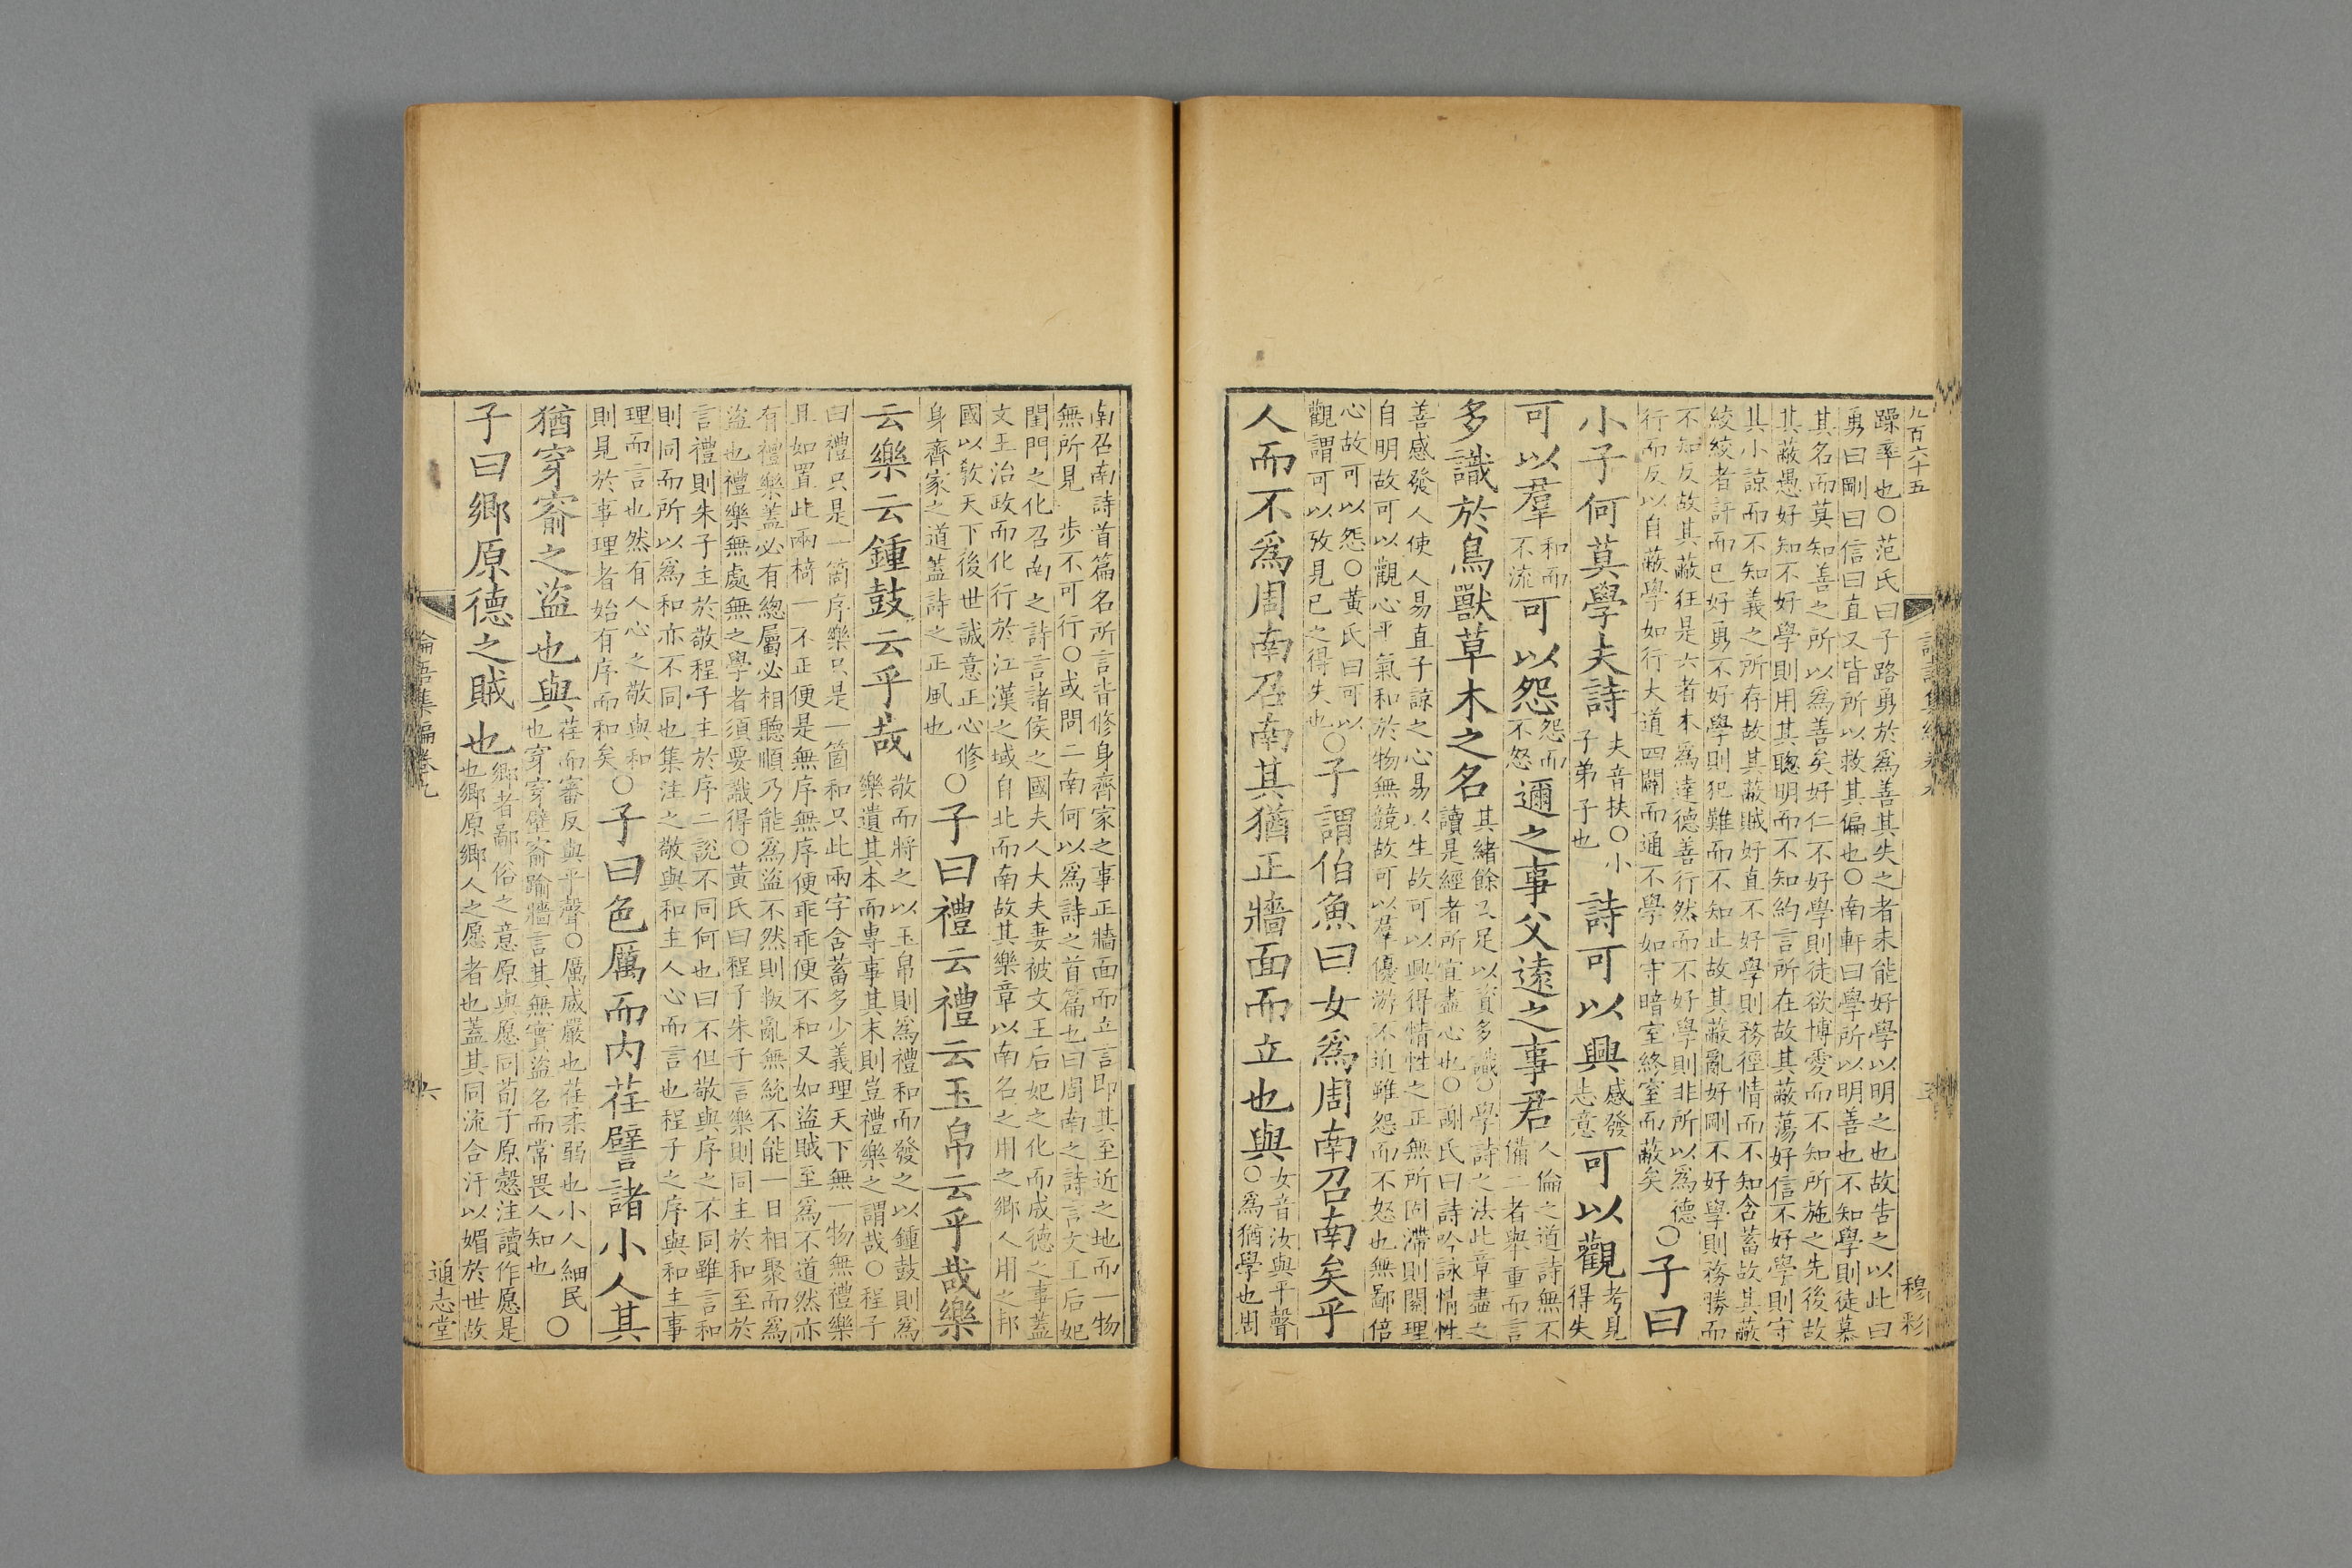 九百六十五
穆彩
躁率也○范氏曰子路勇於爲善其失之者未能好學以明之也故告之以此曰
勇曰剛曰信曰直又皆所以救其偏也○南軒曰學所以明善也不知學則徒慕
其名而莫知善之所以爲善矣好仁不好學則徒欲博愛而不知所施之先後故
其蔽愚好知不好學則用其聰明而不知約言所在故其蔽蕩好信不好學則守
其小諒而不知義之所存故其蔽賊好直不好學則務徑情而不知含蓄故其蔽
絞絞者訐而已好勇不好學則犯難而不知止故其蔽亂好剛不好學則務勝而
不知反故其蔽狂是六者本爲達德善行然而不好學則非所以爲德
行而反以自蔽學如行大道四闢而通不學如守暗室終室而蔽矣
○子曰
小子何莫學夫詩
夫音扶○小
子弟子也
詩可以興
感發
志意
可以觀
考見
得失
可以羣
和而
不流
可以怨
怨而
不怒
邇之事父遠之事君
人倫之道詩無不
備二者舉重而言
多識於鳥獸草木之名
其緒餘又足以資多識○學詩之法此章盡之
讀是經者所宜盡心也○謝氏曰詩吟詠情性
善感發人使人易直子諒之心易以生故可以興得情性之正無所固滯則闢理
自明故可以觀心平氣和於物無競故可以羣優游不迫雖怨而不怒也無鄙倍
心故可以怨○黃氏曰可以
觀謂可以攷見己之得失也
○子謂伯魚曰女爲周南召南矣乎
人而不爲周南召南其猶正牆面而立也與
女音汝與平聲
○爲猶學也周
南召南詩首篇名所言皆修身齊家之事正牆面而立言即其至近之地而一物
無所見一步不可行○或問二南何以爲詩之首篇也曰周南之詩言文王后妃
閨門之化召南之詩言諸侯之國夫人大夫妻被文王后妃之化而成德之事蓋
文王治政而化行於江漢之域自北而南故其樂章以南名之用之鄉人用之邦
國以敎天下後世誠意正心修
身齊家之道蓋詩之正風也
○子曰禮云禮云玉帛云乎哉樂
云樂云鍾鼓云乎哉
敬而將之以玉帛則爲禮和而發之以鍾鼓則爲
樂遺其本而專事其末則豈禮樂之謂哉○程子
曰禮只是一箇序樂只是一箇和只此兩字含蓄多少義理天下無一物無禮樂
且如置此兩椅一不正便是無序無序便乖乖便不和又如盜賊至爲不道然亦
有禮樂蓋必有總屬必相聽順乃能爲盜不然則叛亂無統不能一日相聚而爲
盜也禮樂無處無之學者須要識得○黃氏曰程子朱子言樂則同主於和至於
言禮則朱子主於敬程子主於序二說不同何也曰不但敬與序之不同雖言和
則同而所以爲和亦不同也集注之敬與和主人心而言也程子之序與和主事
理而言也然有人心之敬與和
則見於事理者始有序而和矣
○子曰色厲而內荏譬諸小人其
猶穿窬之盜也與
荏而審反與平聲○厲威嚴也荏柔弱也小人細民
也穿穿壁窬踰牆言其無實盜名而常畏人知也
○
子曰鄉原德之賊也
鄉者鄙俗之意原與愿同荀子原愨注讀作愿是
也鄉原鄉人之愿者也蓋其同流合汙以媚於世故
論語集編卷九
六
通志堂